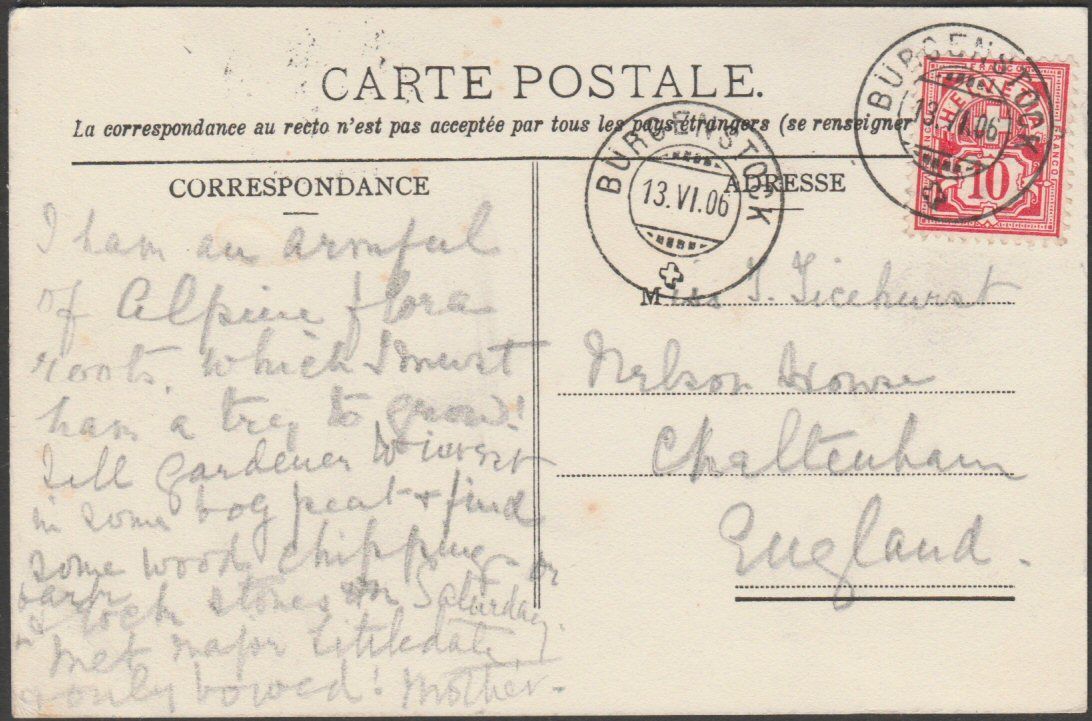 CARTE POSTALE.
La correspondance au recto n'est pas acceptée par tous les pays étrangers (se renseigner
CORRESPONDANCE
ADRESSE
BÜRGENSTOCK
13.VI.06
BÜRGENSTOCK
13.VI.06
FRANCO
HELVETIA
10
FRANCO
I have an armful
of Alpine flora
roots. which I must
have a try to grow!
Tell gardener to invest
in some bog peat & find
some wood chippings or
bark
& rock stones on Saturday.
Met major Littledale
& only bowed! Mother.
Miss I. Ticehurst
Nelson House
Cheltenham
England.